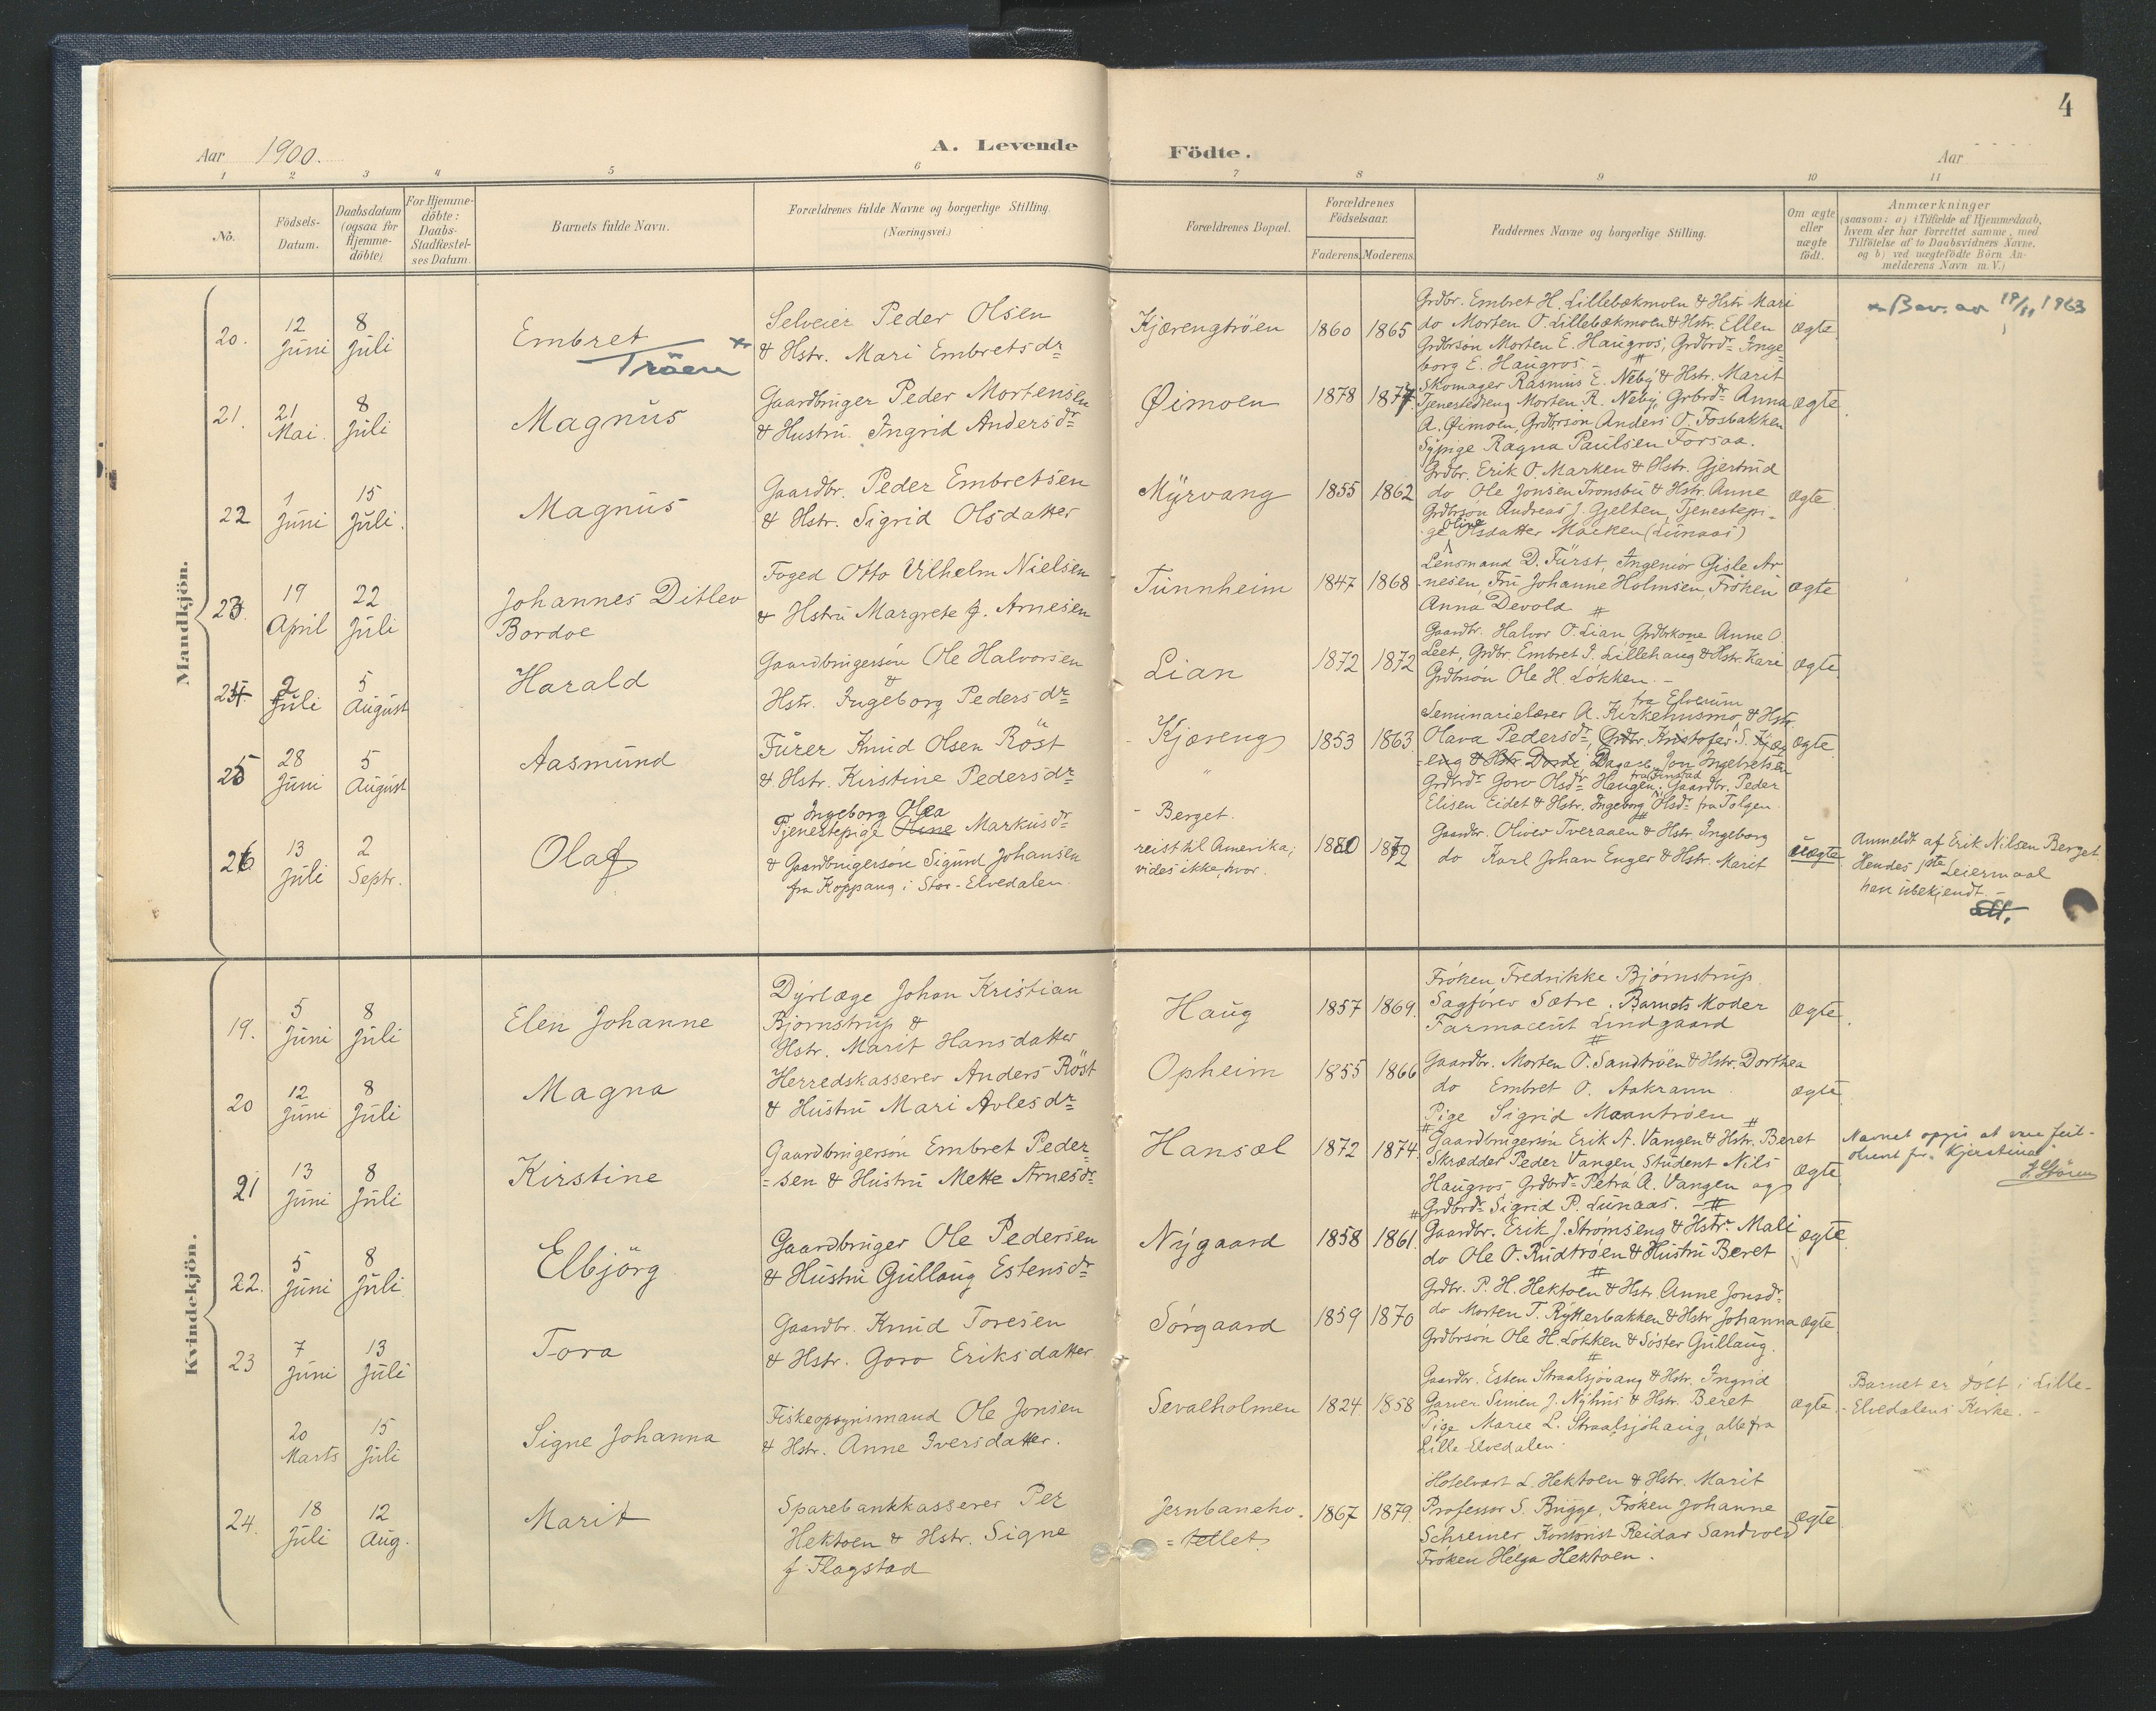 4
Aar 1900.
A. Levende Födte.
Aar
1 2 3 4 5 6 7 8 9 10 11
No.
Födsels-
Datum.
Daabsdatum
(ogsaa for
Hjemme-
döbte)
For Hjemme-
döbte:
Daabs-
Stadfæstel-
ses Datum.
Barnets fulde Navn.
Forældrenes fulde Navne og borgerlige Stilling.
(Næringsvei.)
Forældrenes Bopæl.
Forældrenes
Födselsaar.
Faderens. Moderens.
Faddernes Navne og borgerlige Stilling.
Om ægte
eller
uægte
födt.
Anmærkninger
(saasom: a) i Tilfælde af Hjemmedaab,
hvem der har forrettet samme, med
Tilföielse af to Daabsvidners Navne,
og b) ved uægtefödte Börn An-
melderens Navn m. V.)
Mandkjön.
20.
12
Juni
8
Juli
Embret
Tröen
Selveier Peder Olsen
& Hstr. Mari Embretsdr
Kjærengtröen
1860 1865
Grdbr. Embret H. Lillebækmoen & Hstr Mari
do Morten O. Lillebækmoen & Hstr. Ellen
Grdbrsön Morten E. Haugros, Grdbrdr Inge-
borg E. Haugros. -
ægte
Bev. av 19/11 1963
21.
21
Mai.
8
Juli
Magnus
Gaardbruger Peder Mortensen
& Hustru Ingrid Andersdr
Øimoen
1878 1877
Skomager Rasmus E. Neby & Hstr. Marit
Tjenestedreng Morten R. Neby, Grbrdr Anna
A. Øimoen, Grdbrsön Anders O. Fosbakken
Sypige Ragna Paulsen Forsaa.
ægte
22
1
Juni
15
Juli.
Magnus
Gaardbr. Peder Embretsen
& Hstr. Sigrid Olsdatter
Myrvang
1855 1862
Grdbr. Erik O. Marken & Hstr. Gjertrud
do Ole Jonsen Tronsbu & Hstr. Anne
Grdbrsön Andreas J. Gjelten, Tjenestepi-
ge Oline Olsdatter Moeken (Lunaas)
ægte
23.
19
April
22
Juli
Johannes Ditlev
Bordoe
Foged Otto Vilhelm Nielsen
& Hstru Margrete f. Arnesen
Tunnheim
1847 1868
Lensmand D. Fürst, Ingeniör Gisle Ar-
nesen, Fru Johanne Holmsen, Fröken
Anna Devold #
ægte
24
2
Juli
5
August
Harald
Gaardbrugersön Ole Halvorsen
&
Hstr. Ingeborg Pedersdr
Lian
1872 1872
Gaardbr. Halvor O. Lian, Grdbrkone Anne O.
Leet, Grdbr. Embret P. Lillehaug & Hstr. Kari
Grdbrsön Ole H. Lökken. -
ægte.
25
28
Juni
5
August
Aasmund
Furer Knud Olsen Röst
& Hstr. Kirstine Pedersdr
Kjæreng
1853 1863.
fra Elverum
Seminarielærer A. Kirkehusmo & Hstr.
Olava Pedersdr, Grdbr. Kristofer S. Kjær-
eng & Hstr Dordi, Jon Ingebretsen
Grdbrdr Goro Olsdr Haugen, Gaardbr. Peder
Elisen Eidet & Hstr. Ingeborg Olsdr fra Tolgen.
ægte
26
13
Juli
2
Septr.
Olaf
Ingeborg Olea
Tjenestepige Oline Markusdr
& Gaardbrugersön Sigurd Johansen
fra Koppang i Stor-Elvedalen.
- Berget.
reist til Amerika;
vides ikke, hvor.
1880 1879
Gaardbr. Oliver Tveraaen & Hstr Ingeborg
do Karl Johan Enger & Hstr. Marit
uægte
Anmeldt af Erik Nilsen Berget
Hendes 1ste Leiermaal
han ubekjendt. -
Kvindekjön.
19.
5
Juni
8
Juli
Elen Johanne
Dyrlæge Johan Kristian
Bjornstrup &
Hstr. Marit Hansdatter
Haug
1857 1869.
Fröken Fredrikke Bjørnstrup
Sagförer Sætre. Barnets Moder
Farmaceut Lindgaard
#
ægte.
20
12
Juni
8
Juli
Magna
Herredskasserer Anders Röst
& Hustru Mari Avlesdr
Opheim
1855 1866
Gaardbr. Morten O. Sandtröen & Hstr. Dorthea
do Embret O. Aakrann
Pige Sigrid Maantröen #
ægte
21
13
Juni
8
Juli
Kirstine
Gaardbrugersön Embret Peder-
=sen & Hustru Mette Arnesdr
Hansæl
1872 1874.
Gaardbrugersön Erik A. Vangen & Hstr. Beret
Skrædder Peder Vangen, Student Nils
Haugros Grdbrdr Petra A. Vangen og
Grdbrdr Sigrid P. Lunaas. - #
ægte
Navnet opgis at være feil-
skrevet for Kjerstina
22.
5
Juni
8
Juli
Elbjörg
Gaardbruger Ole Pedersen
& Hustru Gullaug Estensdr
Nygaard
1858 1861.
Gaardbr. Erik J. Strömseng & Hstr. Mali
do Ole O. Rudtröen & Hustru Beret
#
ægte
23
7
Juni
13
Juli
Tora
Gaardbr. Knud Toresen
& Hstr. Goro Eriksdatter
Sörgaard
1859 1870
Grdbr. P. H. Hektoen & Hstr. Anne Jonsdr.
do Morten T. Rytterbakken & Hstr Johanna
Grdbrsön Ole H. Lökken & Söster Gullaug.
#
ægte
20
Marts
15
Juli
Signe Johanna
Fiskeopsynsmand Ole Jonsen
& Hstr. Anne Iversdatter.
Sevalholmen
1824 1858
Gaardbr. Esten Straalsjövang & Hstr. Ingrid
Garver Simen J. Nyhus & Hstr. Beret
Pige Marie L. Straalsjöhaug, alle fra
Lille-Elvedalen.
ægte.
Barnet er döbt i Lille-
- Elvedalens Kirke. -
24.
18
Juli
12
Aug.
Marit
Sparebankkasserer Per
Hektoen & Hstr. Signe
f Flagstad
Jernbaneho-
=tellet
1867 1879.
Hotelvært L. Hektoen & Hstr. Marit
Professor S. Bugge, Fröken Johanne
Schreiner Kontorist Reidar Sandvold
Fröken Helga Hektoen.
ægte